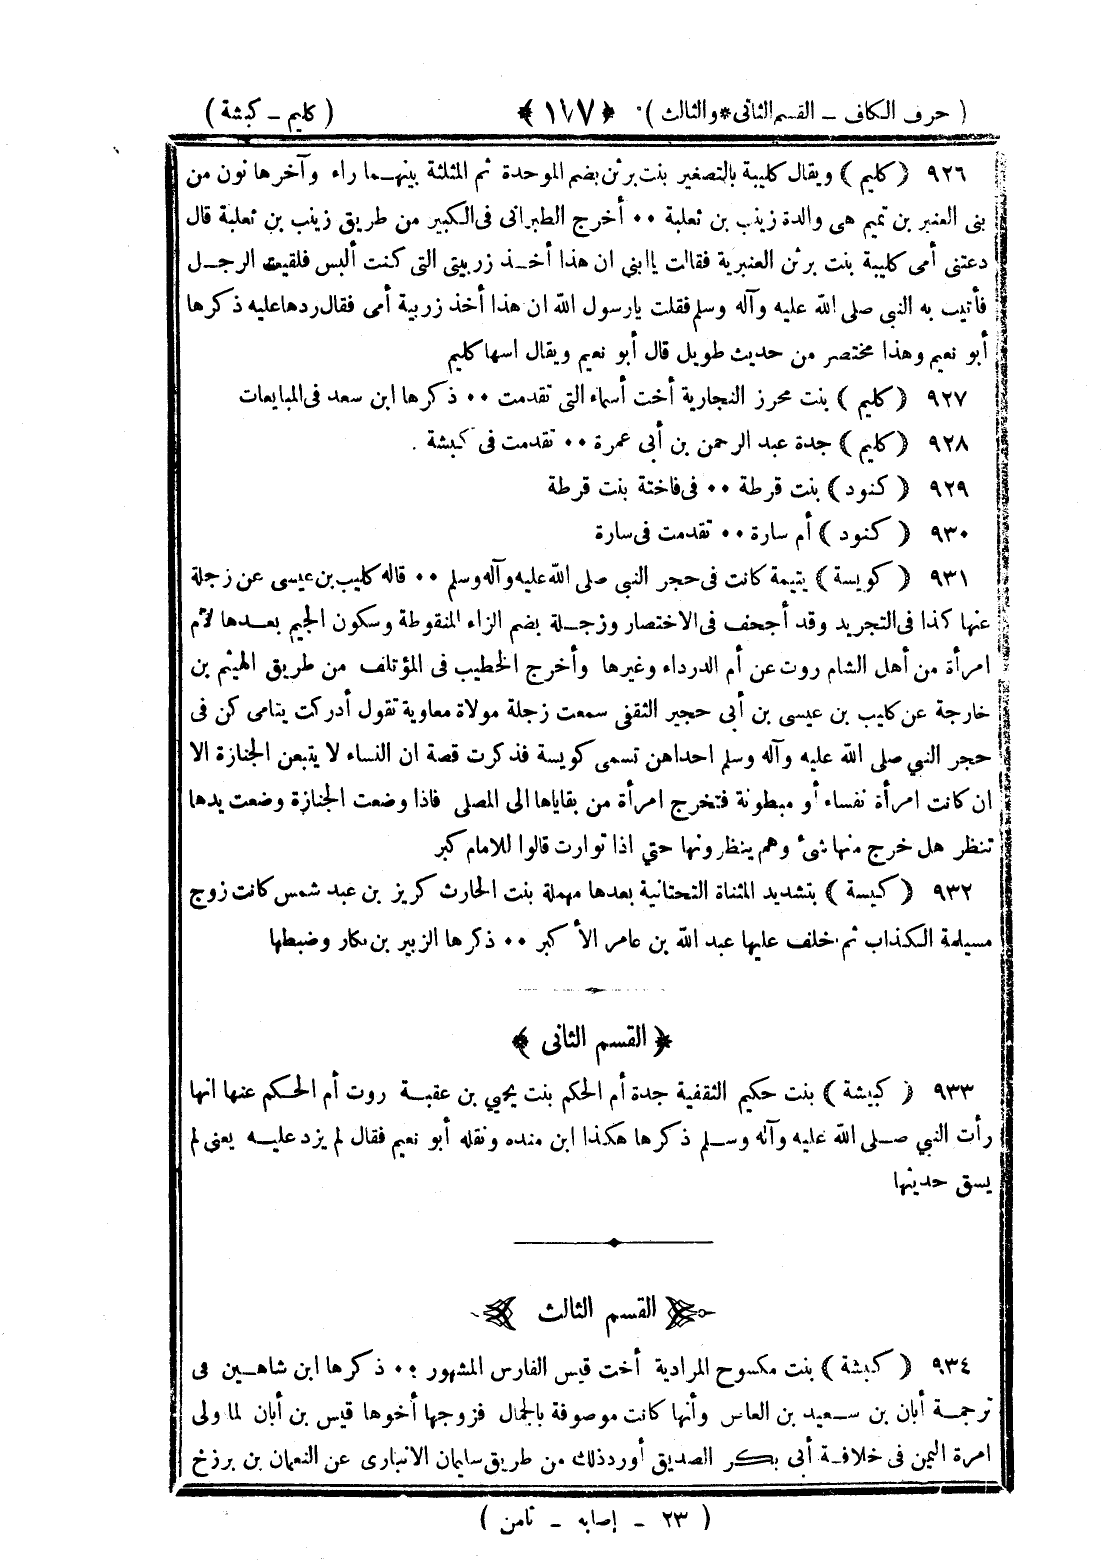 ( حرف الكاف ـ القسم الثانى*والثالث ) ﴿ ١٧٧ ﴾ ( كليم ـ كبشة )
٩٢٦ ( كليم ) ويقال كليبة بالتصغير بنت برثن بضم الموحدة ثم المثلثة بينهما راء وآخرها نون من
بنى العنبر بن تميم هى والدة زينب بن ثعلبة ٠٠ أخرج الطبرانى فى الكبير من طريق زينب بن ثعلبة قال
دعتنى أمى كليبة بنت برثن العنبرية فقالت ياابنى ان هذا أخذ زربيتى التى كنت ألبس فلقيت الرجل
فأتيت به النبى صلى الله عليه وآله وسلم فقلت يارسول الله ان هذا أخذ زربية أمى فقال ردها عليه ذكرها
أبو نعيم وهذا مختصر من حديث طويل قال أبو نعيم ويقال اسمها كليم
٩٢٧ ( كليم ) بنت محرز النجارية أخت أسماء التى تقدمت ٠٠ ذكرها ابن سعد فى المبايعات
٩٢٨ ( كليم ) جدة عبد الرحمن بن أبى عمرة ٠٠ تقدمت فى كبشة .
٩٢٩ ( كنود ) بنت قرظة ٠٠ فى فاختة بنت قرظة
٩٣٠ ( كنود ) أم سارة ٠٠ تقدمت فى سارة
٩٣١ ( كويسة ) يتيمة كانت فى حجر النبى صلى الله عليه وآله وسلم ٠٠ قاله كليب بن عيسى عن زجلة
عنها كذا فى التجريد وقد أجحف فى الاختصار وزجلة بضم الزاء المنقوطة وسكون الجيم بعدها لام
امرأة من أهل الشام روت عن أم الدرداء وغيرها وأخرج الخطيب فى المؤتلف من طريق الهيثم بن
خارجة عن كليب بن عيسى بن أبى حجير الثقفى سمعت زجلة مولاة معاوية تقول أدركت يتامى كن فى
حجر النبى صلى الله عليه وآله وسلم احداهن تسمى كويسة فذكرت قصة ان النساء لا يتبعن الجنازة الا
ان كانت امرأة نفساء أو مبطونة فتخرج امرأة من بقاياها الى المصلى فاذا وضعت الجنازة وضعت يدها
تنظر هل خرج منها شئ وهم ينظرونها حتي اذا توارت قالوا للامام كبر
٩٣٢ ( كيسة ) بتشديد المثناة التحتانية بعدها مهملة بنت الحارث كريز بن عبد شمس كانت زوج
مسيلمة الكذاب ثم خلف عليها عبد الله بن عامر الأكبر ٠٠ ذكرها الزبير بن بكار وضبطها
﴿ القسم الثانى ﴾
٩٣٣ ( كبيشة ) بنت حكيم الثقفية جدة أم الحكم بنت يحيي بن عقبة روت أم الحكم عنها انها
رأت النبي صلى الله عليه وآله وسلم ذكرها هكذا ابن منده ونقله أبو نعيم فقال لم يزد عليه يعنى لم
يسق حديثها
القسم الثالث
٩٣٤ ( كبشة ) بنت مكسوح المرادية أخت قيس الفارس المشهور ٠٠ ذكرها ابن شاهين فى
ترجمة أبان بن سعيد بن العاص وأنها كانت موصوفة بالجمال فزوجها أخوها قيس بن أبان لما ولى
امرة اليمن فى خلافة أبى بكر الصديق أورد ذلك من طريق سليمان الانبارى عن النعمان بن برزخ
( ٢٣ ـ إصابه ـ ثامن )